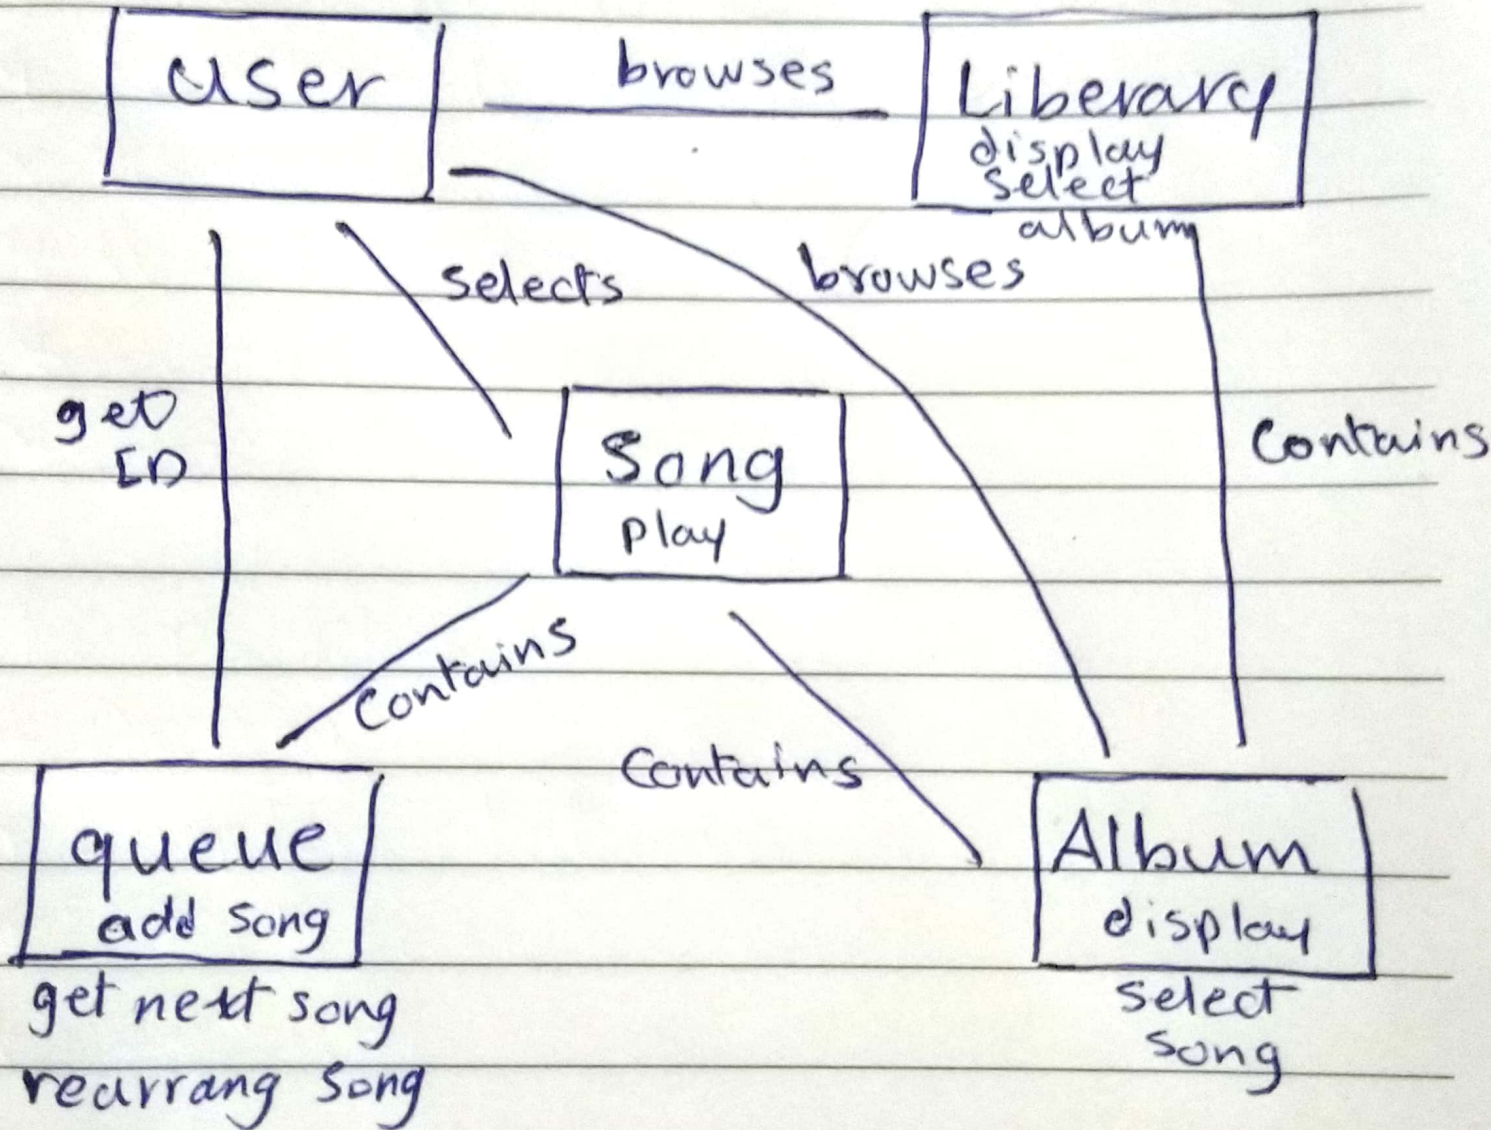 user
browses
Liberary
display
select
album
selects
browses
get
ID
Song
play
Contains
Contains
Contains
queue
add song
get next song
rearrang song
Album
display
select
song